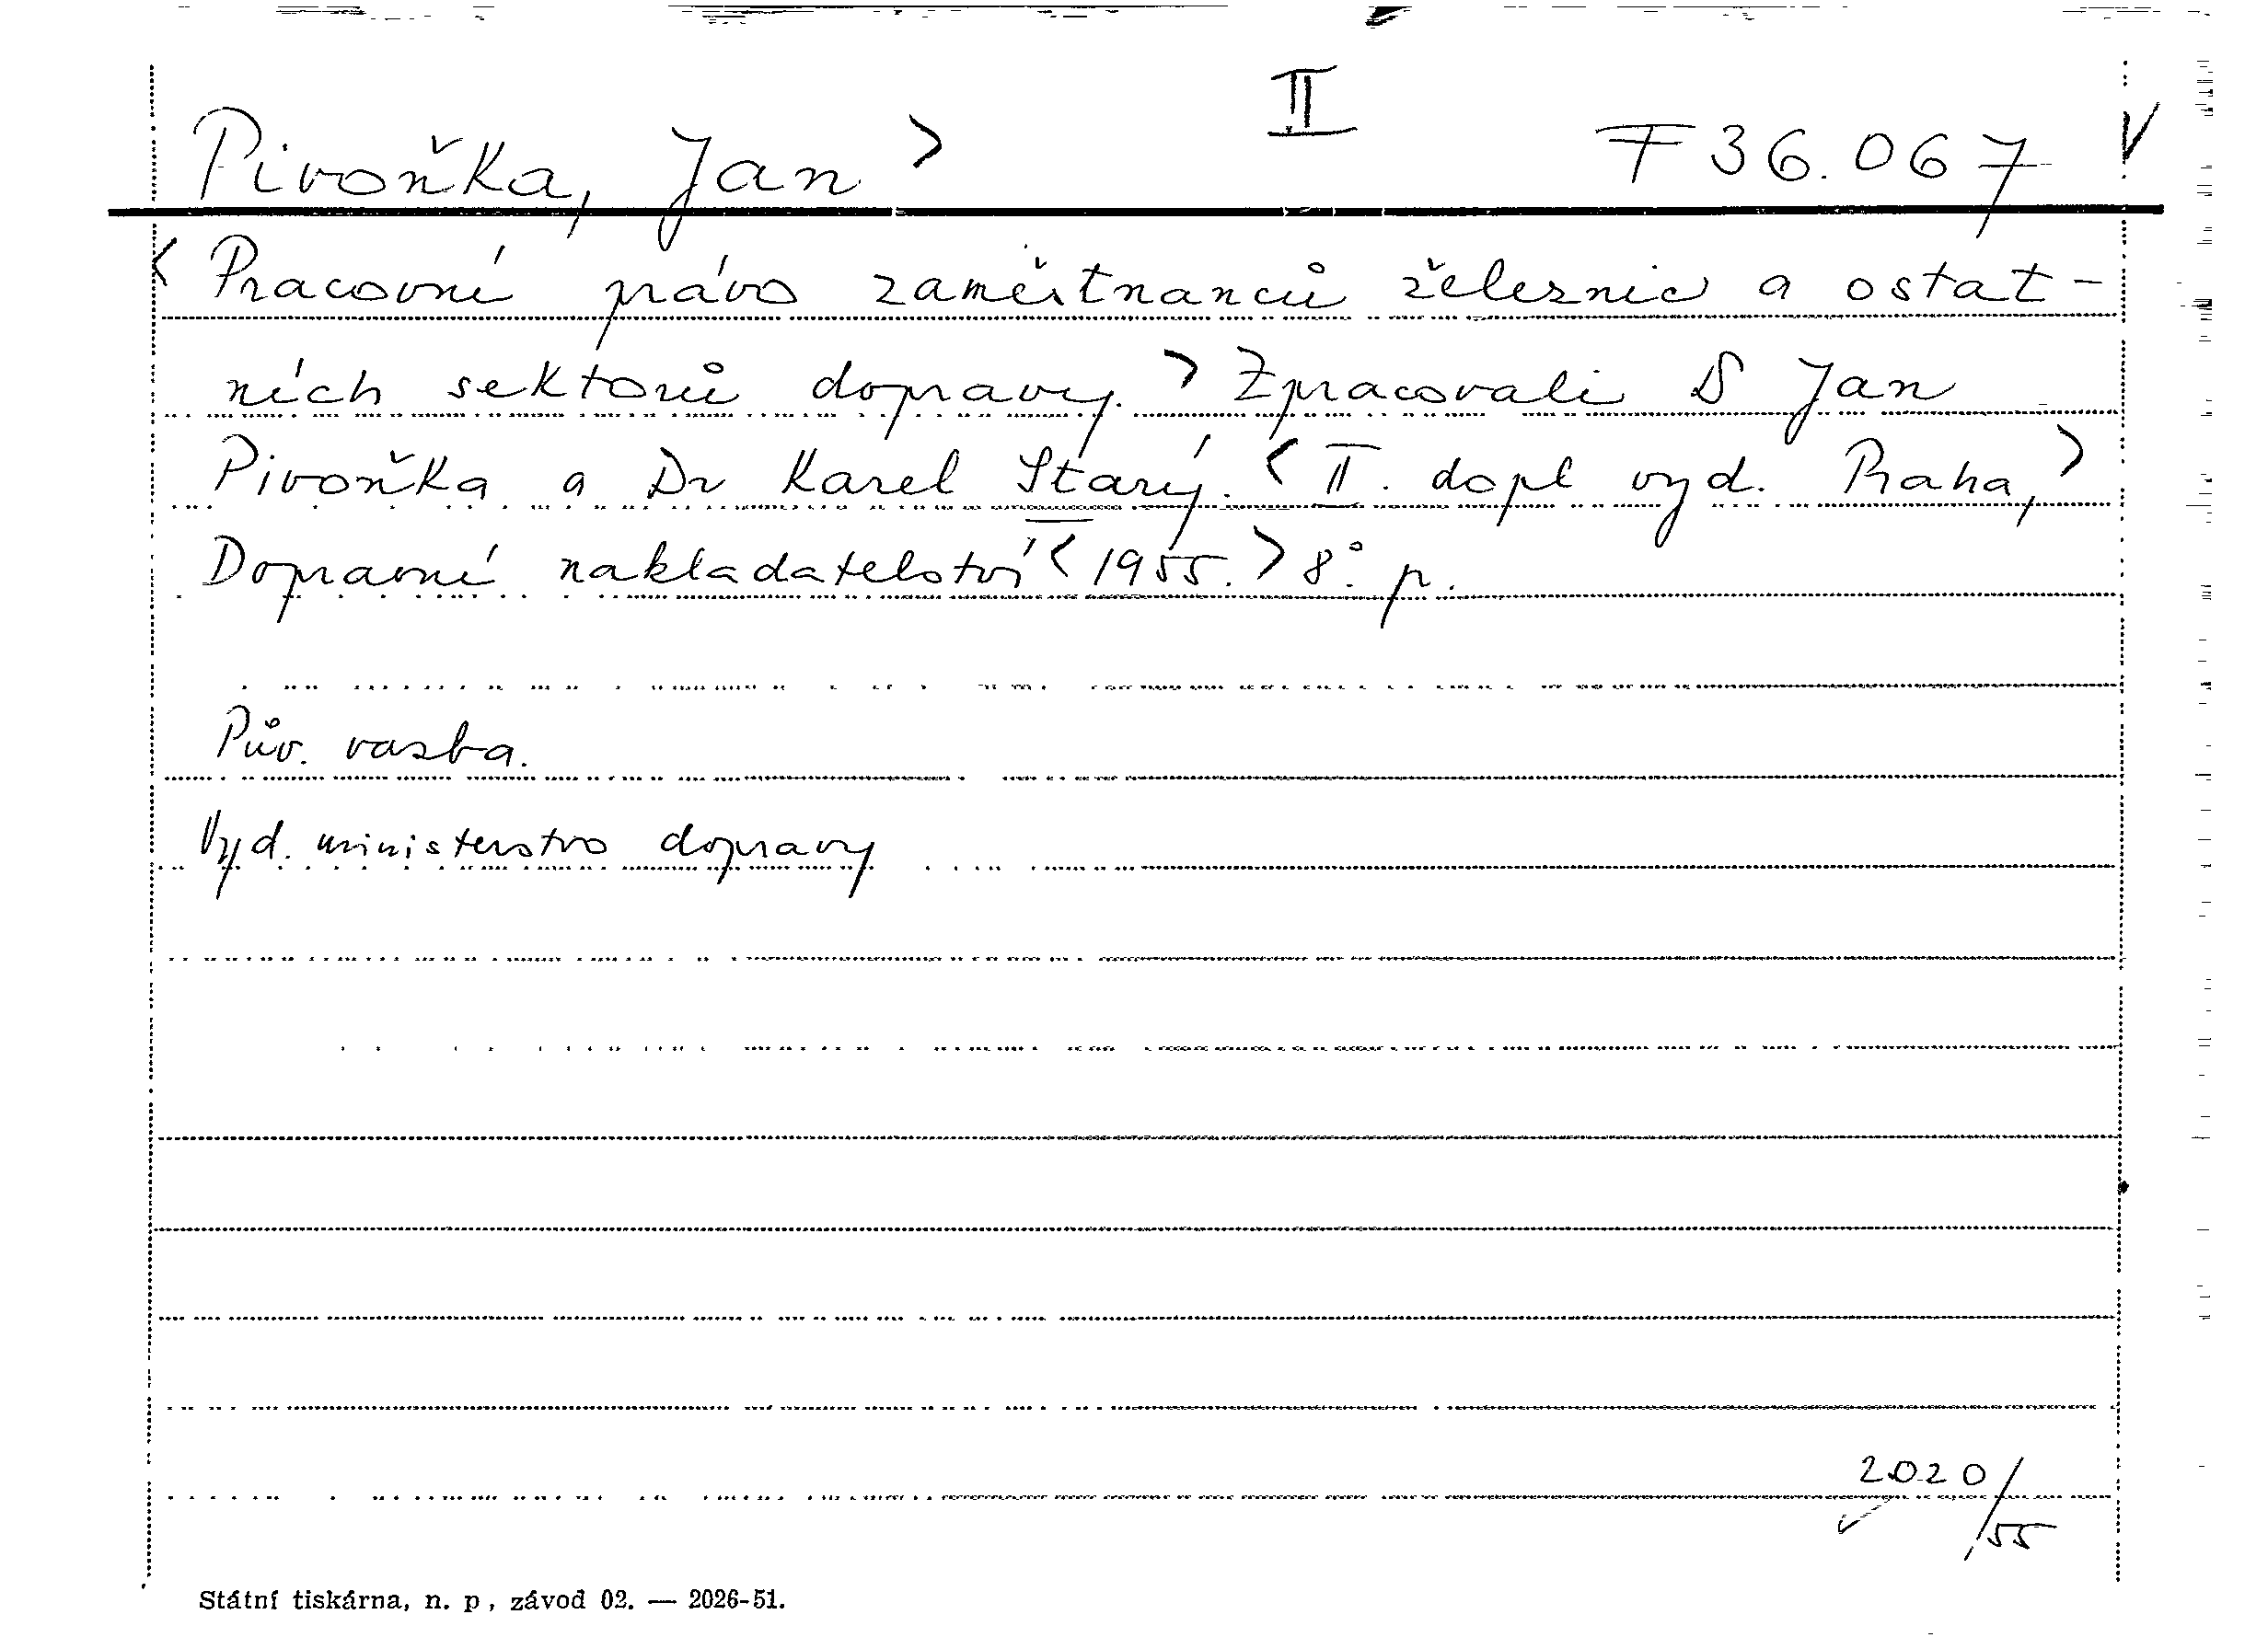 Pivoňka, Jan > II F 36.067 V
< Pracovní právo zaměstnanců železnic a ostat-
ních sektorů dopravy. > Zpracovali D Jan
Pivoňka a Dr Karel Starý. < II. dopl vyd. Praha, >
Dopravní nakladatelství < 1955. > 8°. p.
Pův. vazba.
Vyd. ministerstvo dopravy
2020/
55
Státní tiskárna, n. p, závod 02. — 2026-51.